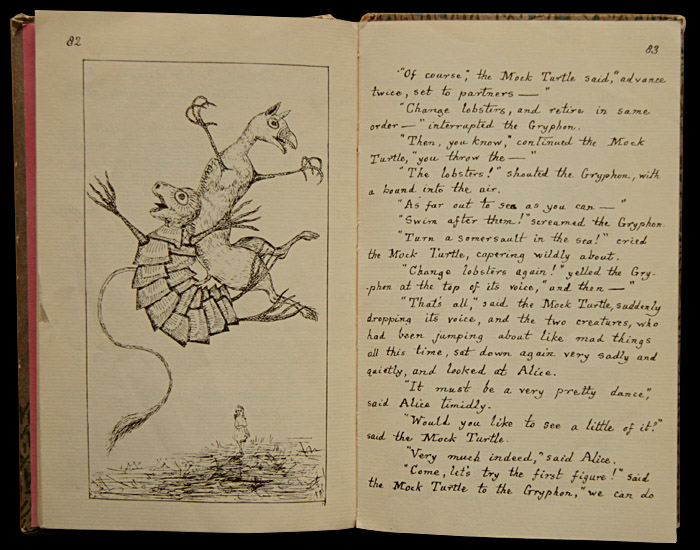 82
83
"Of course," the Mock Turtle said, "advance
twice, set to partners — "
"Change lobsters, and retire in same
order —" interrupted the Gryphon.
"Then, you know," continued the Mock
Turtle, "you throw the — "
"The lobsters!" shouted the Gryphon, with
a bound into the air.
"As far out to sea as you can — "
"Swim after them!" screamed the Gryphon.
"Turn a somersault in the sea!" cried
the Mock Turtle, capering wildly about.
"Change lobsters again!" yelled the Gry-
-phon at the top of its voice, "and then — "
"That's all," said the Mock Turtle, suddenly
dropping its voice, and the two creatures, who
had been jumping about like mad things
all this time, sat down again very sadly and
quietly, and looked at Alice.
"It must be a very pretty dance,"
said Alice timidly.
"Would you like to see a little of it?"
said the Mock Turtle.
"Very much indeed," said Alice.
"Come, let's try the first figure!" said
the Mock Turtle to the Gryphon, "we can do